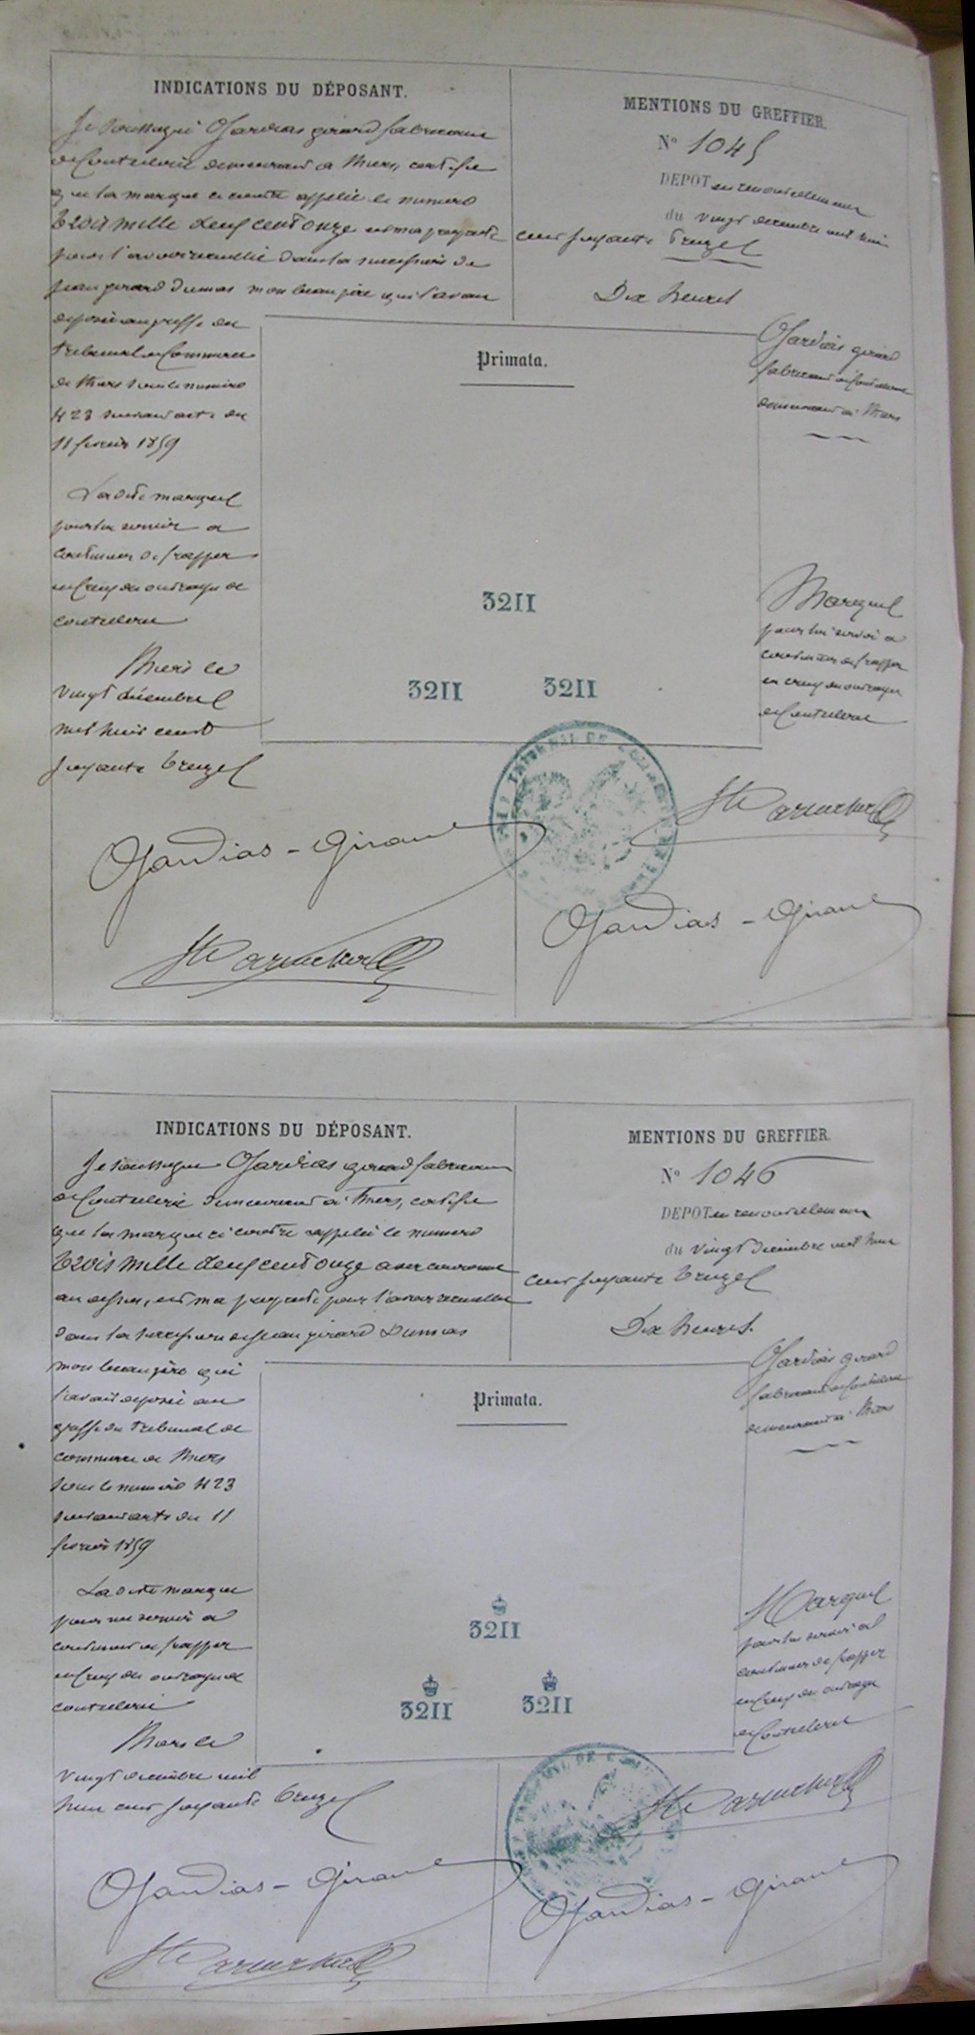 INDICATIONS DU DÉPOSANT.
Je soussigné Ojardias girard fabricant
de Coutellerie demeurant à Thiers, certifie
que la marque ci contre appelée le numero
trois mille deux cent onze est ma propriété
pour l'avoir recueillie dans la succession de
jean girard Dumas mon beau père qui l'avait
deposée au greffe du
tribunal de Commerce
de Thiers sous le numero
423 suivant acte du
11 fevrier 1859
La dite marque
pour servir a
continuer de frapper
en creux des ouvrages de
coutellerie
Thiers le
vingt décembre
mil huit cent
soixante treize
Ojardias-Girard
MENTIONS DU GREFFIER.
N° 1045
DEPOT en renouvellement
du vingt decembre mil huit
cent soixante treize
Dix heures
Primata.
Ojardias girard
fabricant de Coutellerie
demeurant à Thiers
3211
3211 3211
Marque
pour lui servir a
continuer de frapper
en creux des ouvrages
de Coutellerie
Ojardias-Girard
INDICATIONS DU DÉPOSANT.
Je soussigné Ojardias girard fabricant
de Coutellerie demeurant à Thiers, certifie
que la marque ci contre appelée le numero
trois mille deux cent onze avec couronne
au dessus, est ma propriété pour l'avoir recueillie
dans la succession de jean girard Dumas
mon beau père qui
l'avait deposée au
greffe du tribunal de
commerce de Thiers
sous le numéro 423
suivant acte du 11
fevrier 1859
La dite marque
pour me servir a
continuer de frapper
en creux des ouvrages de
coutellerie
Thiers le
vingt decembre mil
huit cent soixante treize
Ojardias-Girard
MENTIONS DU GREFFIER.
N° 1046
DEPOT en renouvellement
du vingt decembre mil huit
cent soixante treize
Dix heures.
Primata.
Ojardias girard
fabricant de Coutellerie
demeurant à Thiers
3211
3211 3211
Marque
pour lui servir a
continuer de frapper
en creux des ouvrages
de Coutellerie
Ojardias-Girard